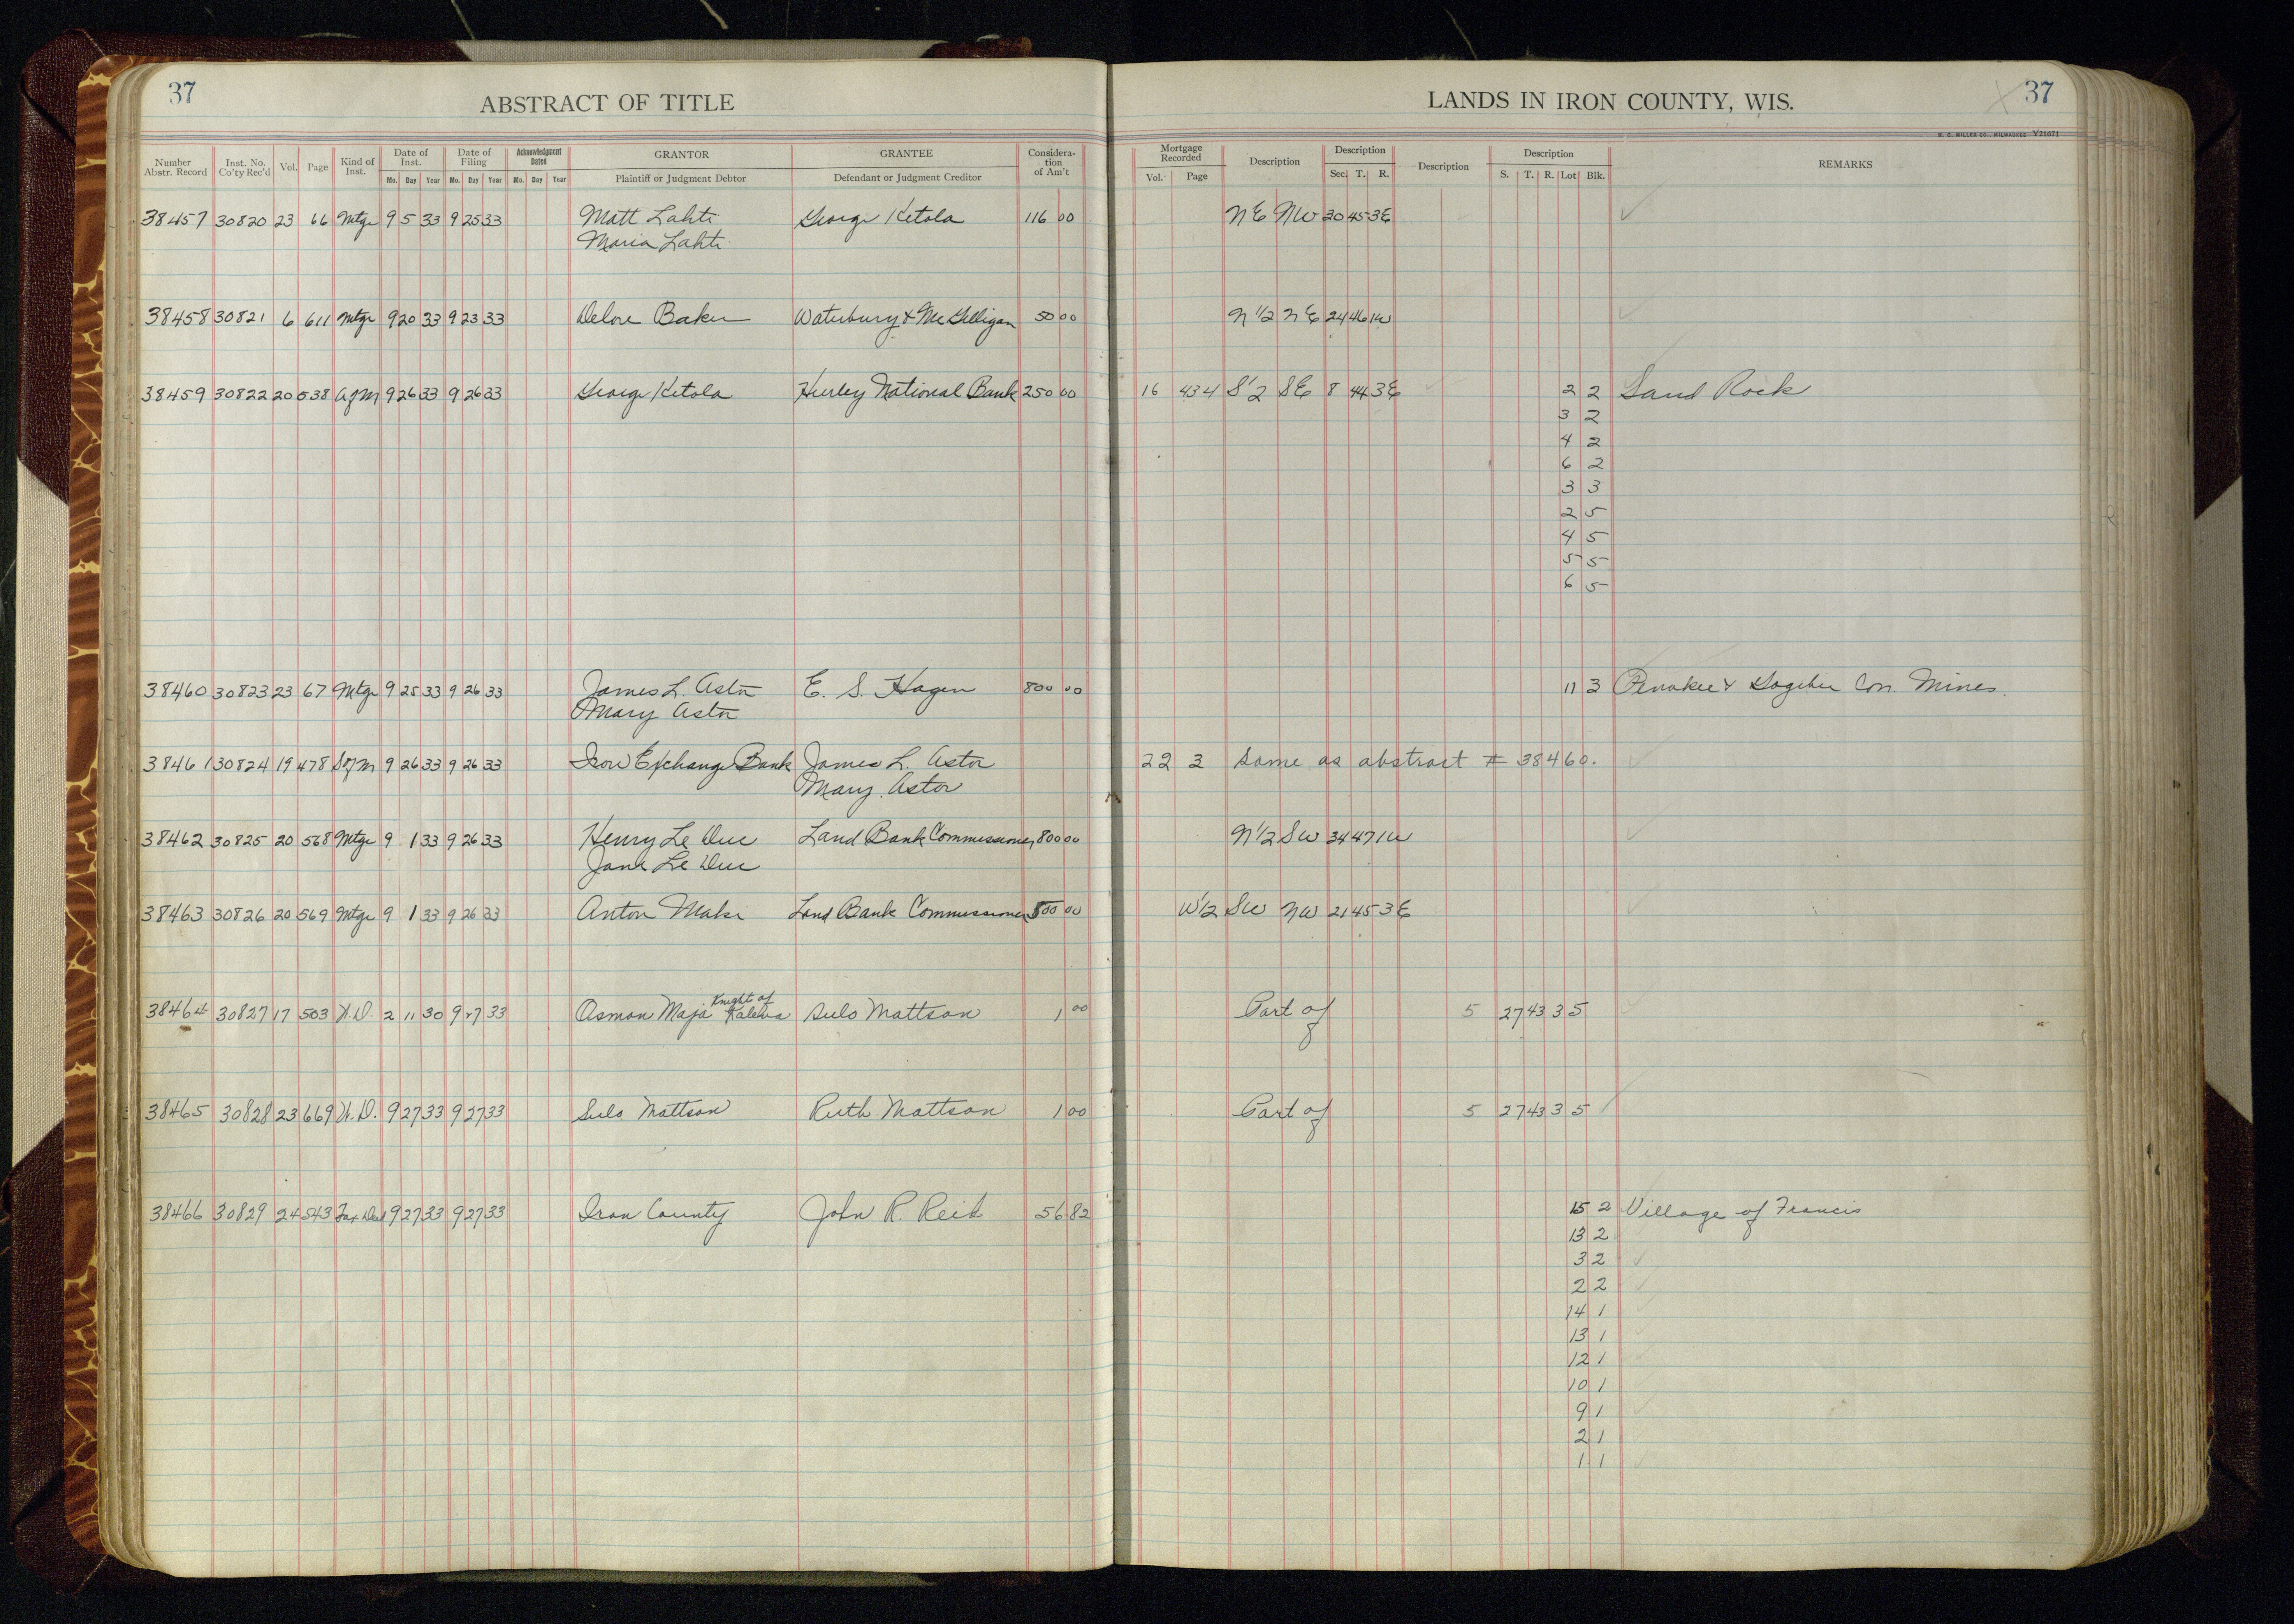 37
ABSTRACT OF TITLE
LANDS IN IRON COUNTY, WIS.
37
H. C. MILLER CO., MILWAUKEE Y21671
Number Abstr. Record Inst. No. Co'ty Rec'd Vol. Page Kind of Inst. Date of Inst. Mo. Day Year Date of Filing Mo. Day Year Acknowledgment Dated Mo. Day Year GRANTOR Plaintiff or Judgment Debtor GRANTEE Defendant or Judgment Creditor Considera-tion of Am't Mortgage Recorded Vol. Page Description Description Sec. T. R. Description Description S. T. R. Lot Blk. REMARKS
38457 30820 23 66 Mtge 9 5 33 9 25 33 Matt Lahti George Ketola 116 00 NE NW 30 45 3E
Maria Lahti
38458 30821 6 611 Mtge 9 20 33 9 23 33 Delore Baker Waterbury & McGilligan 50 00 N 1/2 NE 24 46 1W
38459 30822 20 538 AofM 9 26 33 9 26 33 George Ketola Hurley National Bank 250 00 16 434 S 1/2 SE 8 44 3E 2 2 Sand Rock
3 2
4 2
6 2
3 3
2 5
4 5
5 5
6 5
38460 30823 23 67 Mtge 9 25 33 9 26 33 James L. Astor E. S. Hagen 800 00 11 3 Penokee & Gogebic Con. Mines.
Mary Astor
38461 30824 19 478 SofM 9 26 33 9 26 33 Iron Exchange Bank James L. Astor 22 3 Same as abstract # 38460.
Mary Astor
38462 30825 20 568 Mtge 9 1 33 9 26 33 Henry Le Duc Land Bank Commissioner 800 00 N 1/2 SW 34 47 1W
Jane Le Duc
38463 30826 20 569 Mtge 9 1 33 9 26 33 Anton Maki Land Bank Commissioner 500 00 W 1/2 SW NW 21 45 3E
38464 30827 17 503 W.D. 2 11 30 9 27 33 Osmon Maja Knight of Kaleva Sulo Mattson 1 00 Part of 5 27 43 3 5
38465 30828 23 669 W.D. 9 27 33 9 27 33 Sulo Mattson Ruth Mattson 1 00 Part of 5 27 43 3 5
38466 30829 24 543 Tax Deed 9 27 33 9 27 33 Iron County John R. Reid 56 82 15 2 Village of Francis
13 2
3 2
2 2
14 1
13 1
12 1
10 1
9 1
2 1
1 1